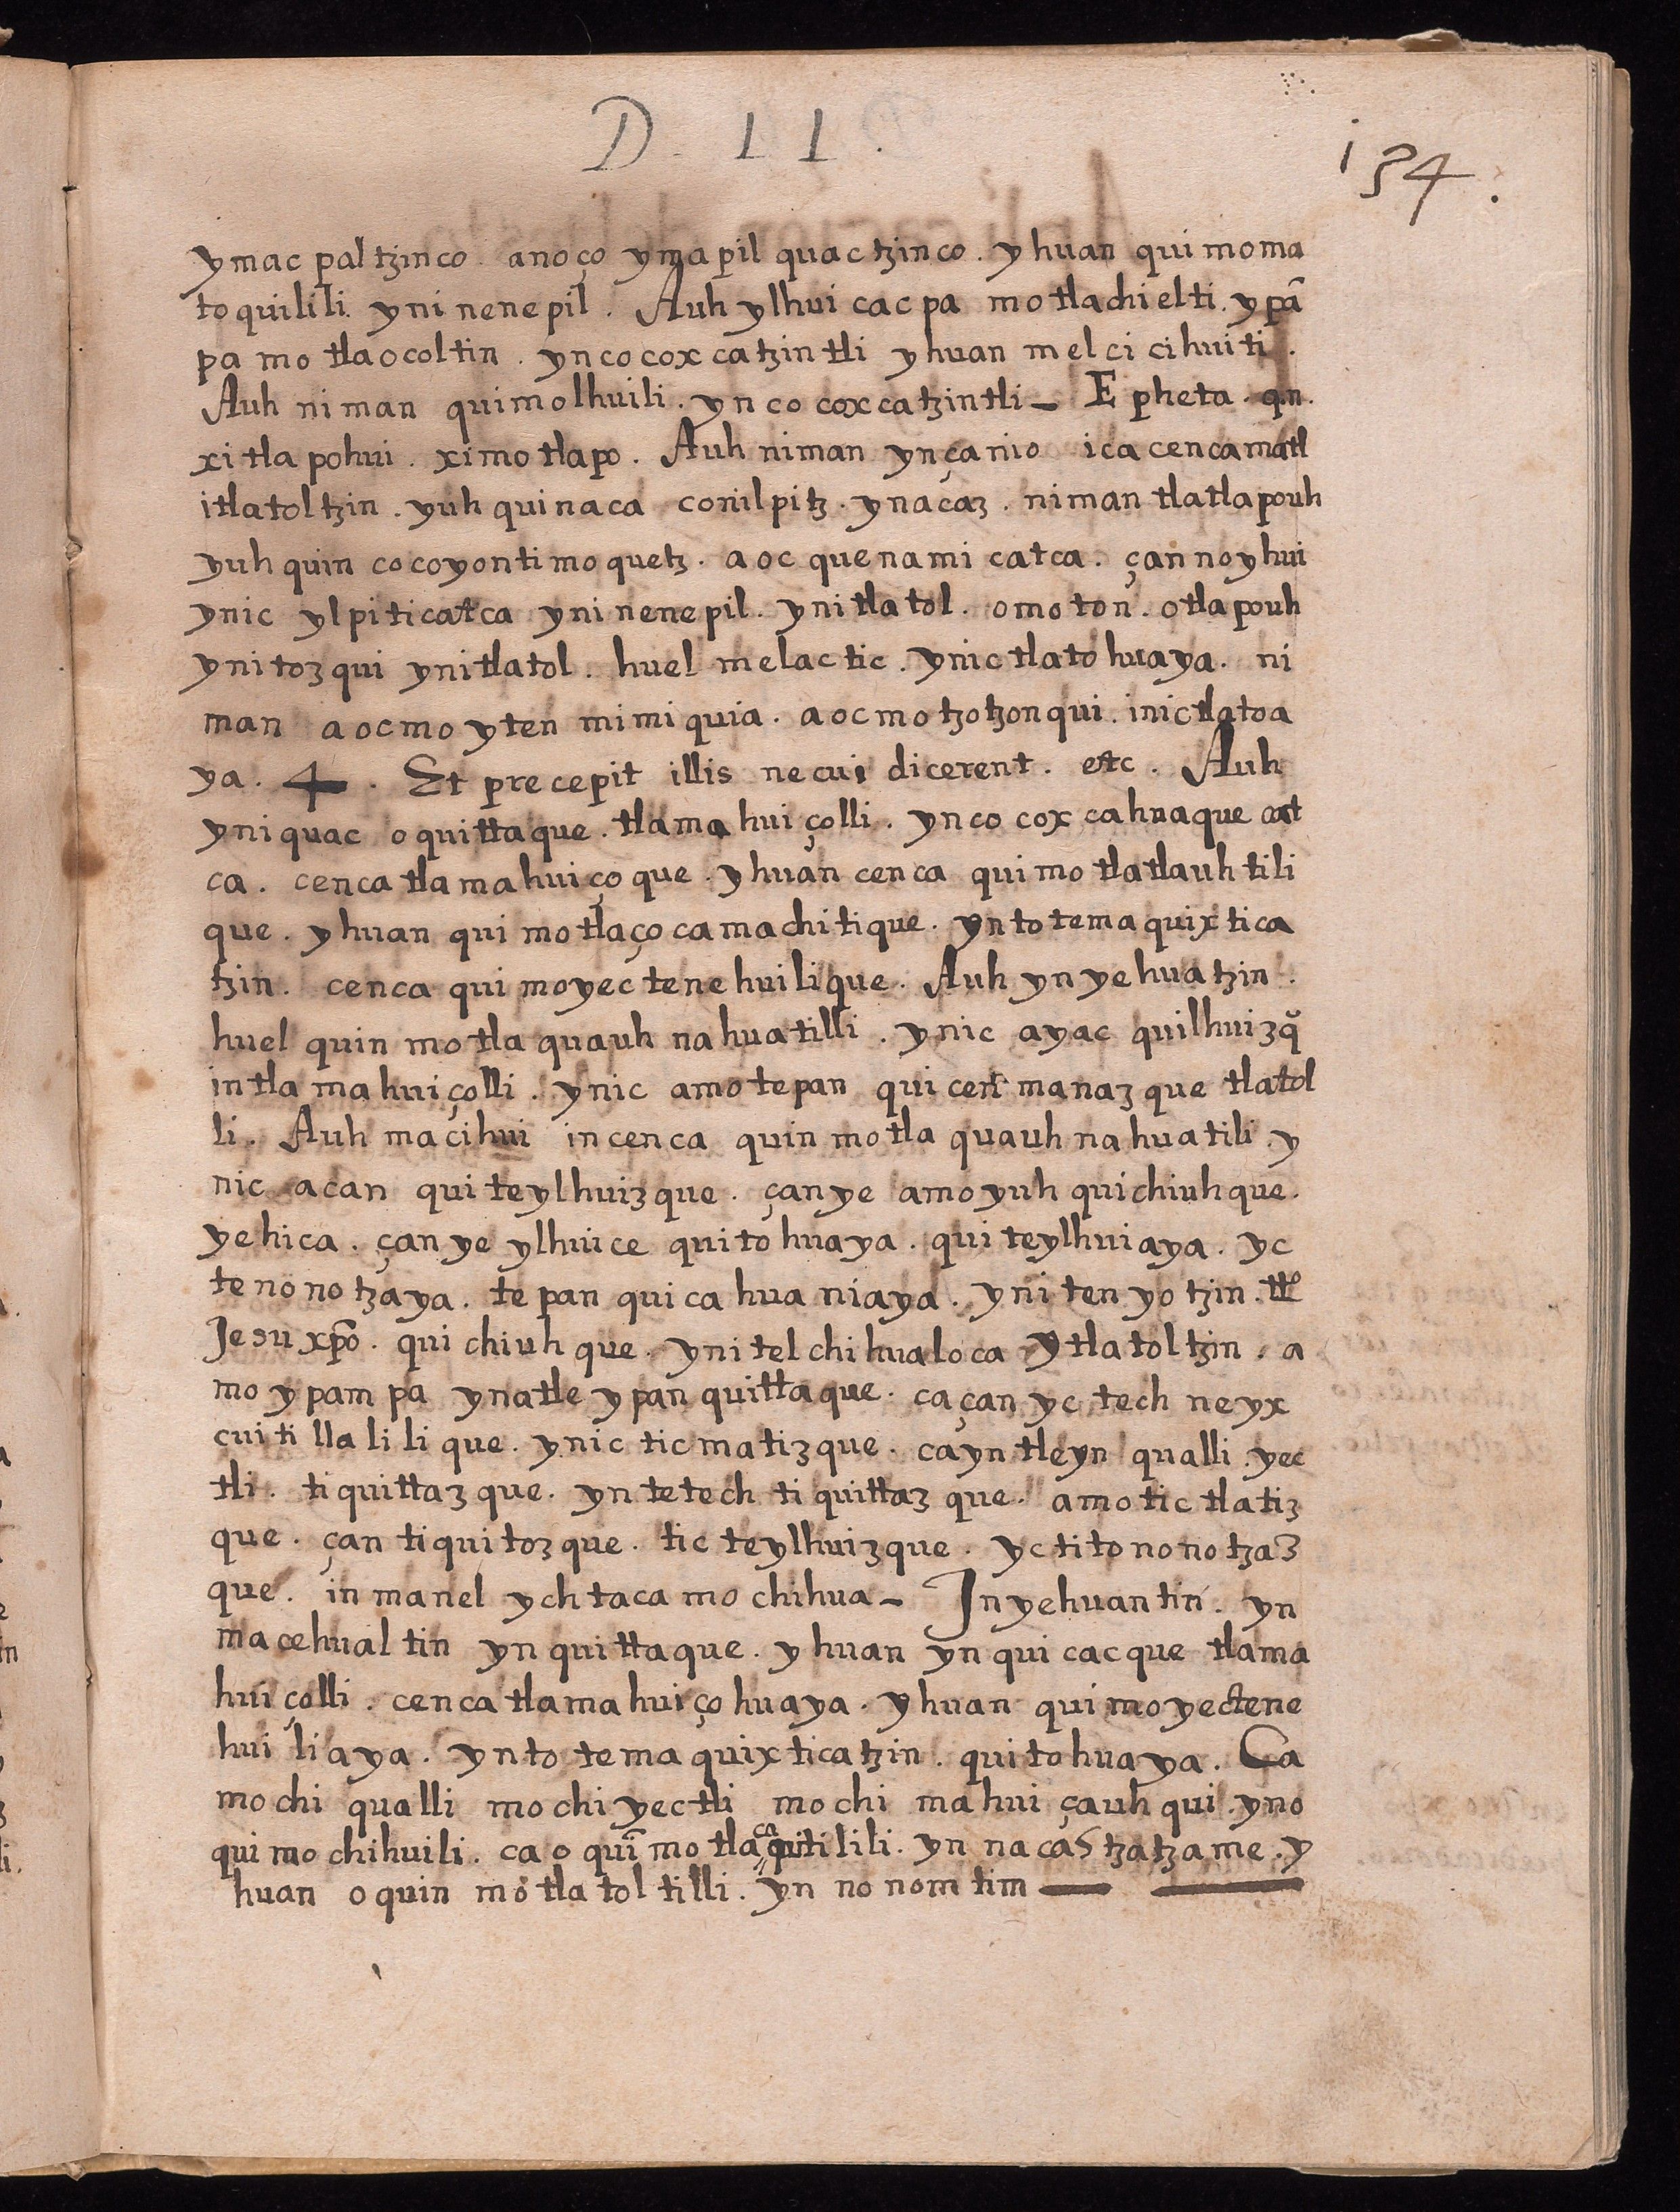 D. 11.
134.
ymac paltzinco. anoço ymapil quactzinco. yhuan quimoma
toquilili. yni nenepil. Auh ylhuicacpa motlachielti. ypã
pa motlaocoltin. yncocoxcatzintli yhuan melcicihuiti.
Auh niman quimolhuili. yn cocoxcatzintli – Epheta. qn.
xitlapohui. ximotlapo. Auh niman ynçanio ica cencamatl
itlatoltzin. yuhquinaca conilpitz. ynacaz. niman tlatlapouh
yuhquin cocoyontimoquetz. aoc quenami catca. çannoyhui
ynic ylpiticatca yninenepil. ynitlatol. omoton. otlapouh
ynitozqui ynitlatol. huel melactic. ynic tlatohuaya. ni
man aocmo yten mimiquia. aocmo tzotzonqui. inic tlatoa
ya. 4. Et precepit illis ne cui dicerent. etc. Auh
yniquac oquittaque. tlamahuiçolli. ynco cox cahuaque cat
ca. cenca tlamahuiçoque. yhuan cenca quimotlatlauhtili
que. yhuan quimotlaçocamachitique. yntotemaquixtica
tzin. cenca quimoyectenehuilique. Auh ynyehuatzin.
huel quinmotlaquauhnahuatilli. ynic ayac quilhuizq̃
intlamahuiçolli. ynic amo tepan quicenmanazque tlatol
li. Auh macihui incenca quinmotlaquauhnahuatili. y
nic acan quiteylhuizque. çanye amoyuh quichiuhque.
yehica. çanye ylhuice quitohuaya. quiteylhuiaya. yc
tenonotzaya. tepan quicahuaniaya. yni tenyotzin. tto
Jesu xpõ. quichiuhque. yni telchihualoca ytlatoltzin. a
mo ypampa ynatle ypan quittaque. caçan yc tech neyx
cuitillalilique. ynic ticmatizque. cayn tleyn qualli. yec
tli. tiquittazque. yn tetech tiquittazque. amo tictlatiz
que. çan tiquitozque. tic teylhuizque. yc titononotzaz
que. in manel ychtaca mochihua – Jnyehuantin. yn
macehualtin ynquittaque. yhuan ynquicacque tlama
huiçolli. cenca tlamahuiçohuaya. yhuan quimoyectene
huiliaya. yntotemaquixticatzin. quitohuaya. Ca
mochi qualli mochi yectli mochi mahuiçauhqui. yno
quimochihuili. ca o quĩmotlacaquitilili. yn nacastzatzame. y
huan oquinmotlatoltilli. yn nonomtim —